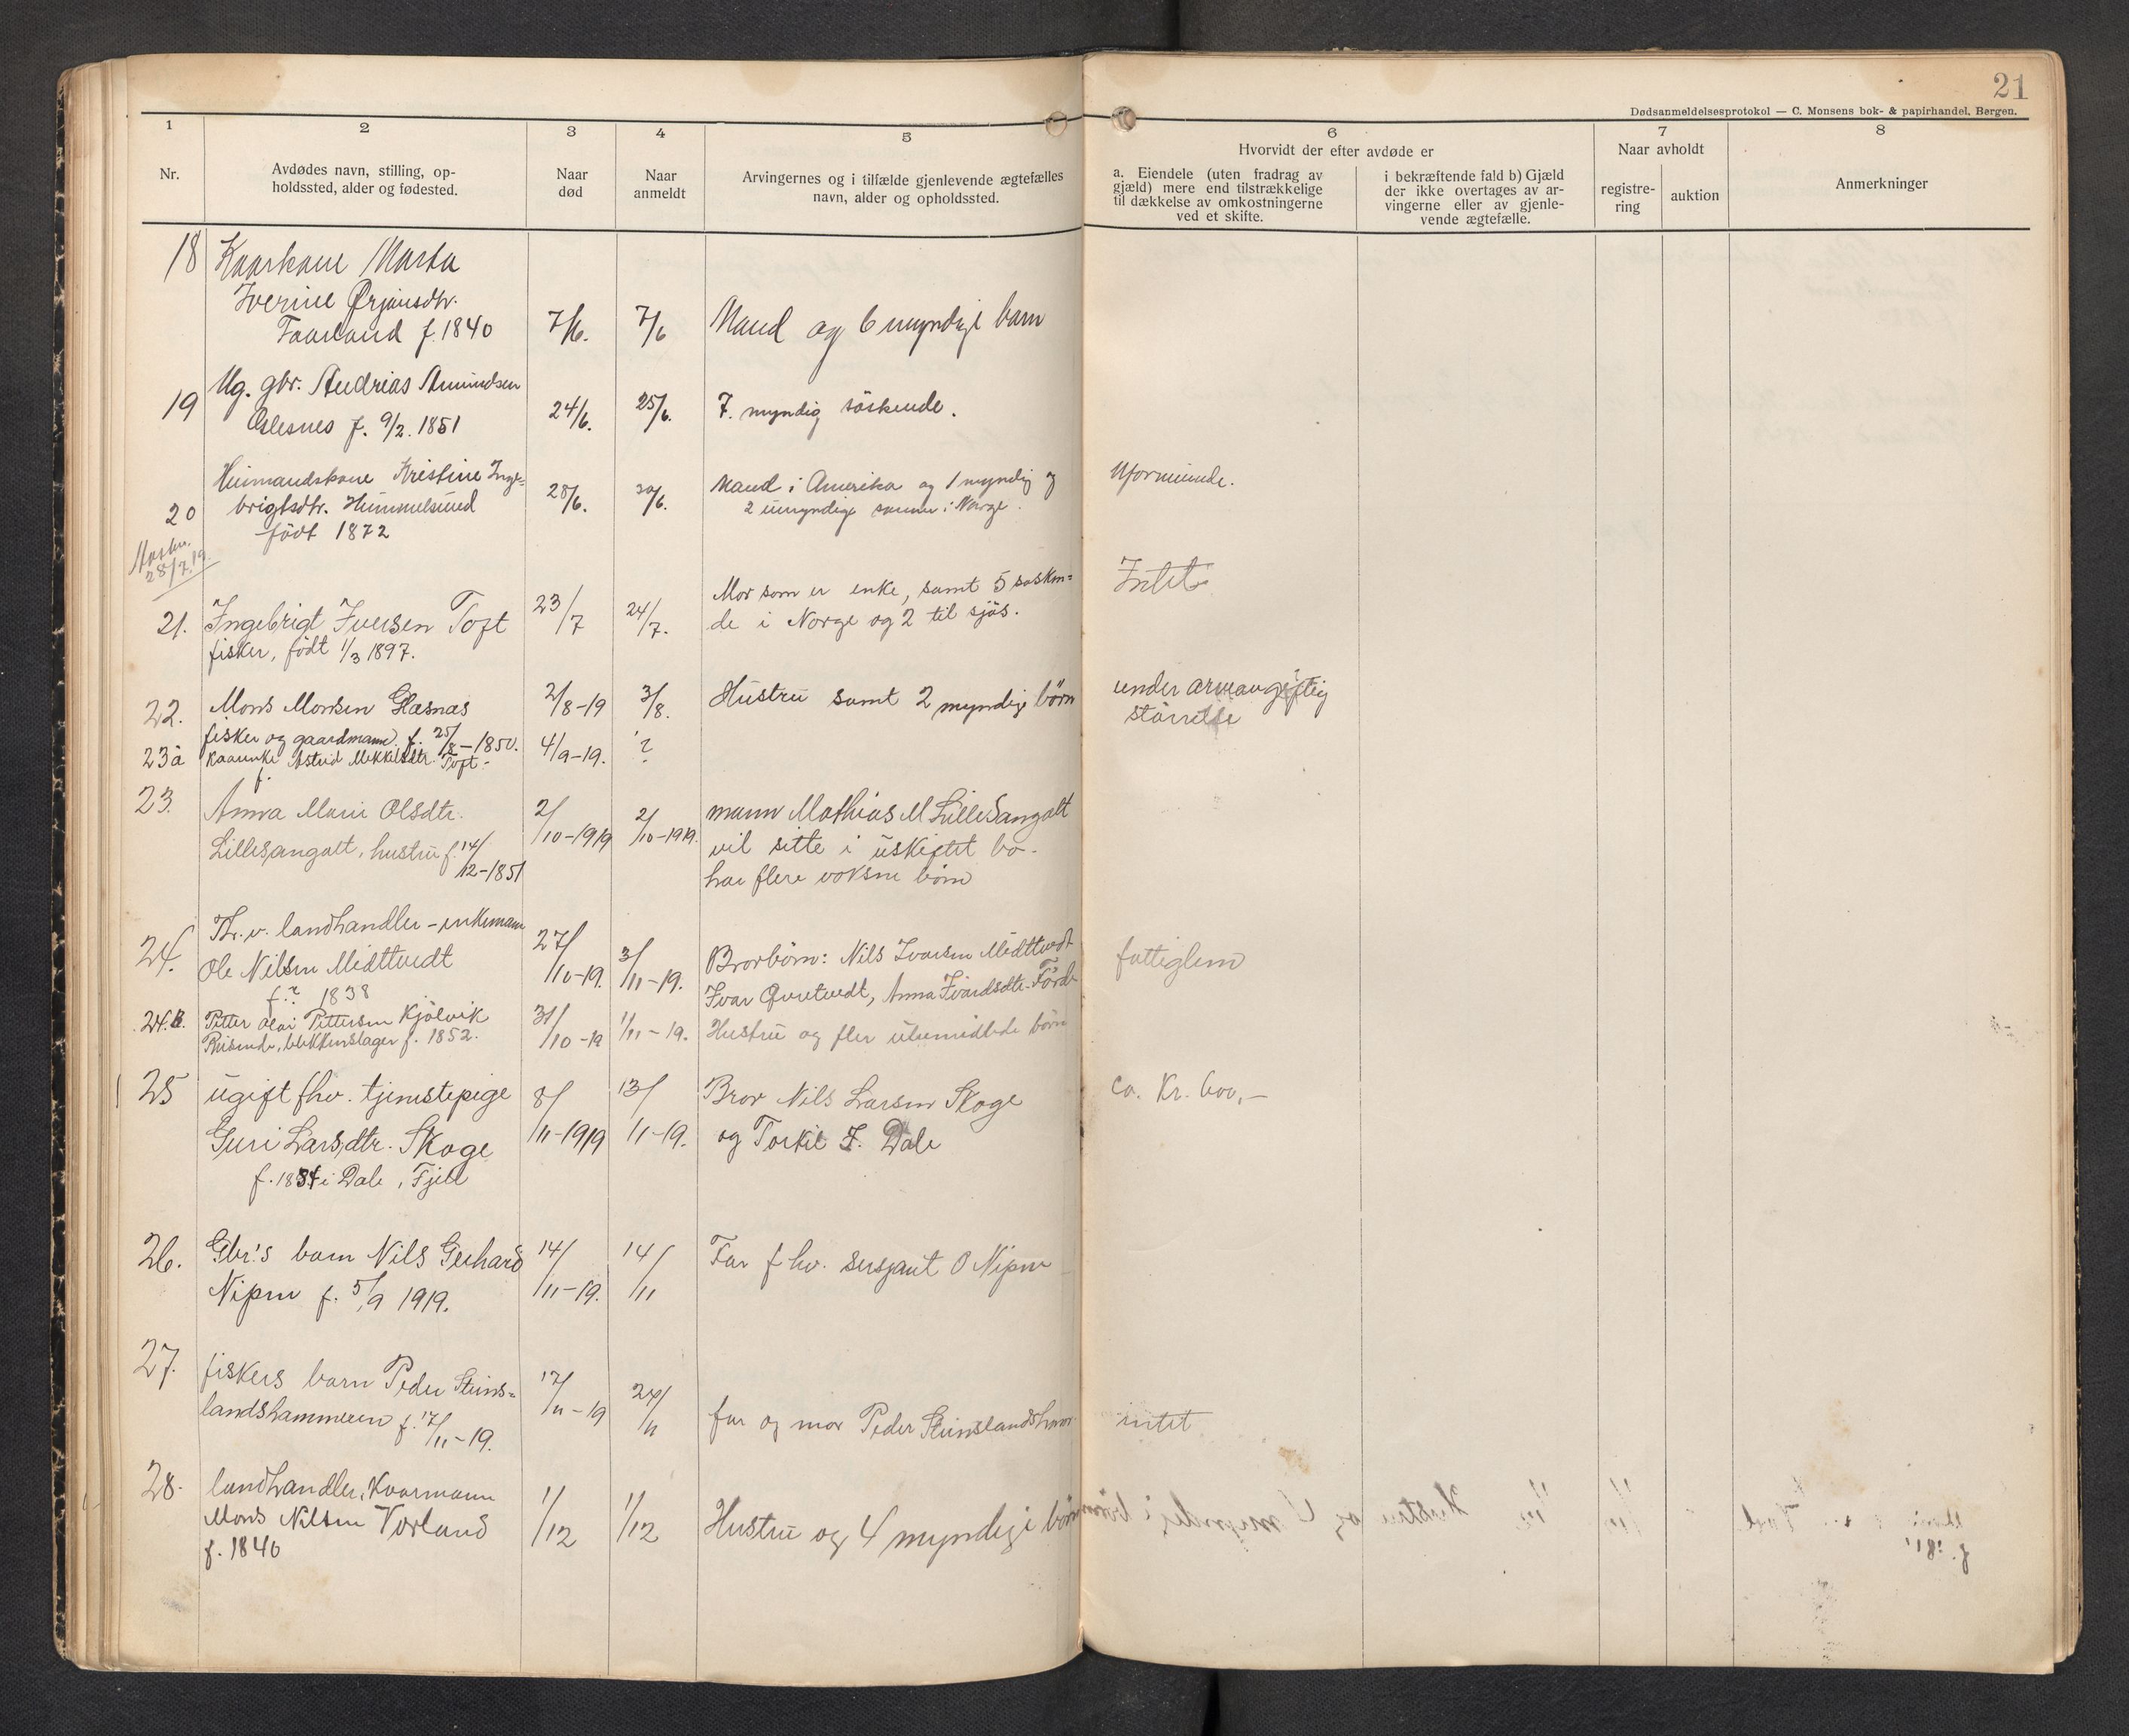 21
Dødsanmeldelsesprotokol — C. Monsens bok- & papirhandel, Bergen.
1 2 3 4 5 6 7 8
Nr.
Avdødes navn, stilling, op-
holdssted, alder og fødested.
Naar
død
Naar
anmeldt
Arvingernes og i tilfælde gjenlevende ægtefælles
navn, alder og opholdssted.
Hvorvidt der efter avdøde er
a. Eiendele (uten fradrag av
gjæld) mere end tilstrækkelige
til dækkelse av omkostningerne
ved et skifte.
i bekræftende fald b) Gjæld
der ikke overtages av ar-
vingerne eller av gjenle-
vende ægtefælle.
Naar avholdt
registre-
ring
auktion
Anmerkninger
18 Kaarkone Marta
Iverine Ørjansdtr.
Faarland f. 1840 7/6. 7/6 Mand og 6 myndige barn
Ug. gbr. Andrias Amundsen
19 24/6. 25/6. 7. myndig söskende.
f. 9/2. 1851
Huimandskone Kristine Inge-
20 brigtsdtr. Hummelsund 28/6. 30/6. Mand i Amerika og 1 myndig og
2 umyndige sønner i Norge. Uformuende.
født 1872
28/7.19.
21. Ingebrigt Iversen Toft 23/7 24/7. Mor som er enke, samt 5 søsken-
de i Norge og 2 til sjös. Intet
fisker, født 1/3 1897.
22. Mons Monsen Glæsnæs 2/8-19 3/8. Hustru samt 2 myndige börn under arveavgiftig
størrelse
fisker og gaardmann f. 25/8-1850.
23a Kaarenke Astrid Mikkelsdtr. Toft. 4/9-19. ?
f.
23. Anna Marie Olsdtr. 2/10-1919 2/10-1919. mann Mathias M Lillesangolt
Lillesangolt, hustru f. 14/12-1851 vil sitte i uskiftet bo.
har flere voksne börn
24. Fh.v. landhandler - enkemann
Ole Nilsen Midttvedt 27/10-19. 3/11-19. Brorbörn: Nils Ivarsen Midttvedt
f.? 1838 Ivar Qvretvedt, Anna Ivarsdtr. Förde fattiglem
24.B. Petter Olai Pettersen Kjölvik 31/10-19 1/11-19. Hustru og flere ubemidlede börn
Reisende, blikkenslager f. 1852.
25 ugift fhv. tjenestepige 8/11-1919 13/11-19. Bror Nils Larsen Skoge ca. Kr. 600,-
Guri Larsdtr. Skoge og Torkil I. Dale
f. 1834 i Dale, Fjell
26. Gbr.'s barn Nils Gerhard 14/11-19. 14/11 Far fhv. sersjant O Nipen
Nipen f. 5/9 1919.
27. fiskers barn Peder Steins-
landshammeren f. 17/11-19. 17/11-19 24/11 far og mor Peder Steinslandsham intet
28. landhandler, Kaarmann
Mons Nilsen Vorland 1/12 1/12 Hustru og 4 myndige börn
f. 1840